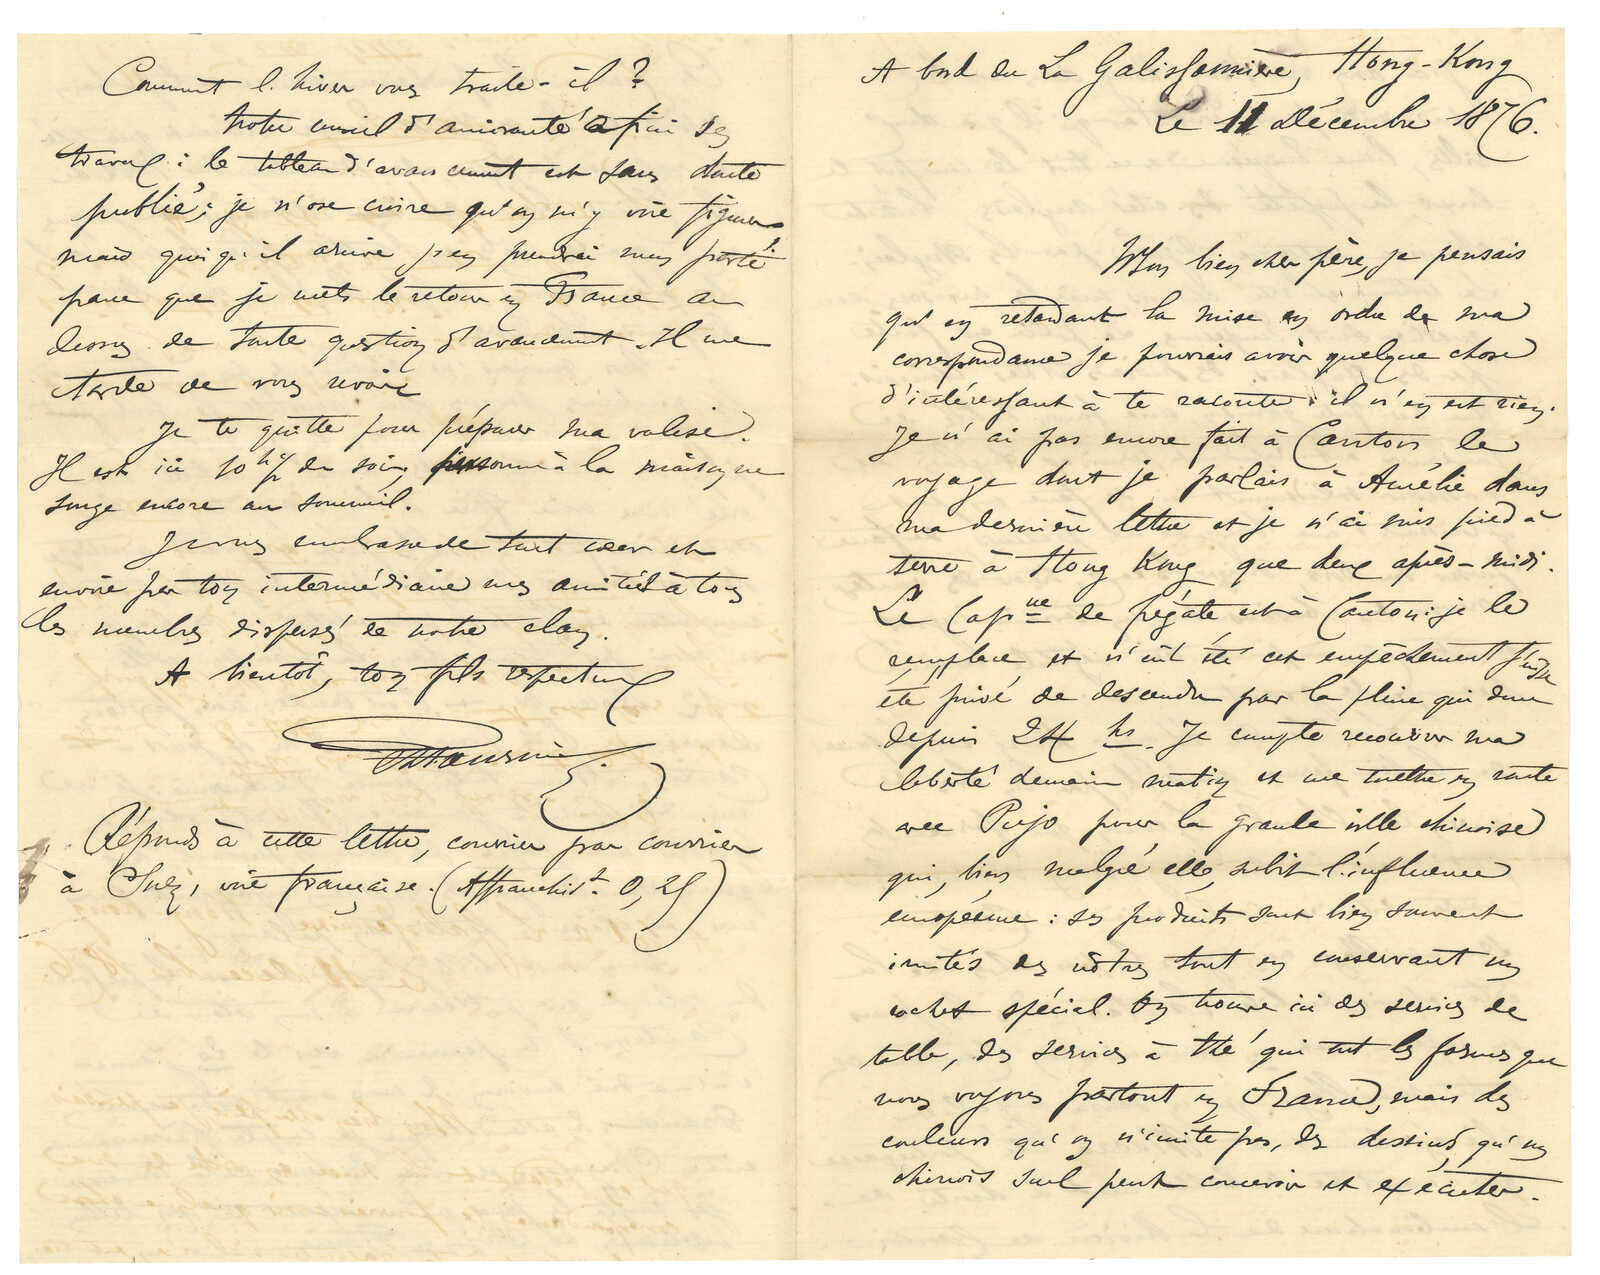 A bord du La Galissonnière, Hong-Kong
Le 11 Décembre 1876.
Mon bien cher père, je pensais
qu'en retardant la mise en ordre de ma
correspondance je pourrais avoir quelque chose
d'intéressant à te raconter : il n'en est rien.
Je n'ai pas encore fait à Canton le
voyage dont je parlais à Amélie dans
ma dernière lettre et je n'ai mis pied à
terre à Hong Kong que deux après-midi.
Le Cap.ne de frégate est à Canton : je le
remplace et n'eût été cet empêchement j'eusse
été privé de descendre par la pluie qui dure
depuis 24 hs. Je compte recouvrer ma
liberté demain matin et me mettre en route
avec Pujo pour la grande ville chinoise
qui, bien malgré elle, subit l'influence
européenne : ses produits sont bien souvent
imités des nôtres tout en conservant un
cachet spécial. On trouve ici des services de
table, des services à thé qui ont les formes que
nous voyons partout en France, mais des
couleurs qu'on n'imite pas, des dessins qu'un
chinois seul peut concevoir et exécuter.
Comment l'hiver vous traite-il ?
Notre conseil d'amirauté a fini ses
travaux : le tableau d'avancement est sans doute
publié ; je n'ose croire qu'on m'y voie figurer
mais quoiqu'il arrive j'en prendrai mon parti
parce que je mets le retour en France au
dessus de toute question d'avancement. Il me
tarde de vous revoir.
Je te quitte pour préparer ma valise.
Il est ici 10 h ½ du soir, personne à la maison ne
songe encore au sommeil.
Je vous embrasse de tout cœur et
envoie par ton intermédiaire mes amitiés à tous
les membres dispersés de notre clan.
A bientôt, ton fils respectueux
Réponds à cette lettre, courrier par courrier
à Suez, voie française. (Affranchist. 0,25)